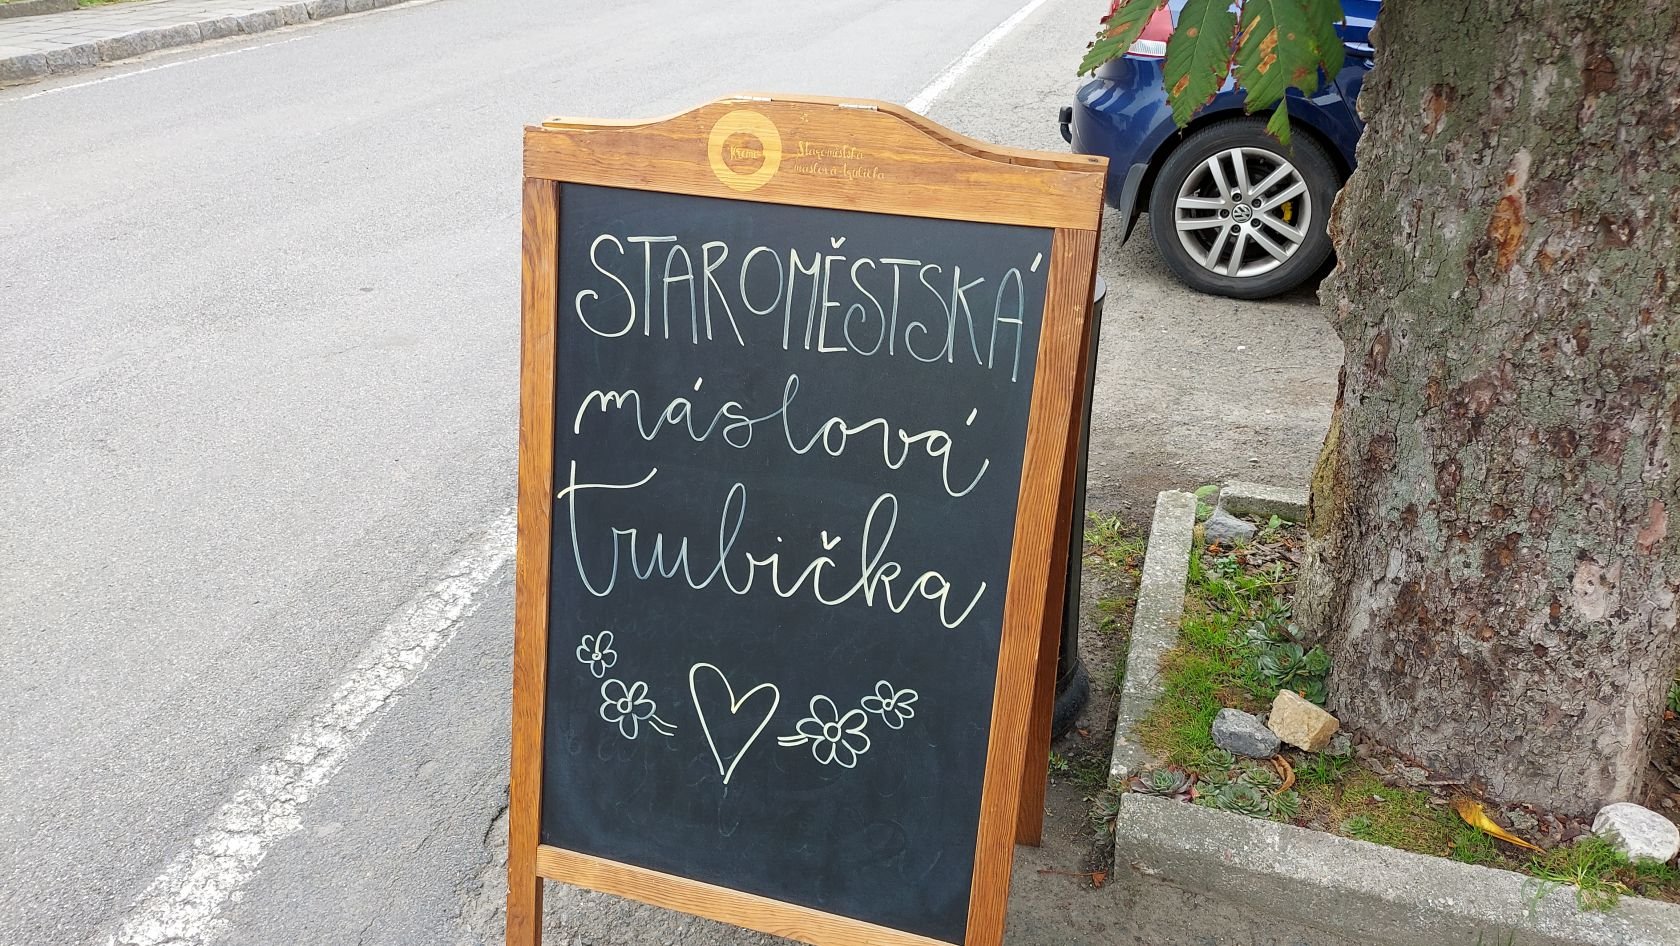 Staroměstská
máslová trubička
STAROMĚSTSKÁ
máslová
trubička